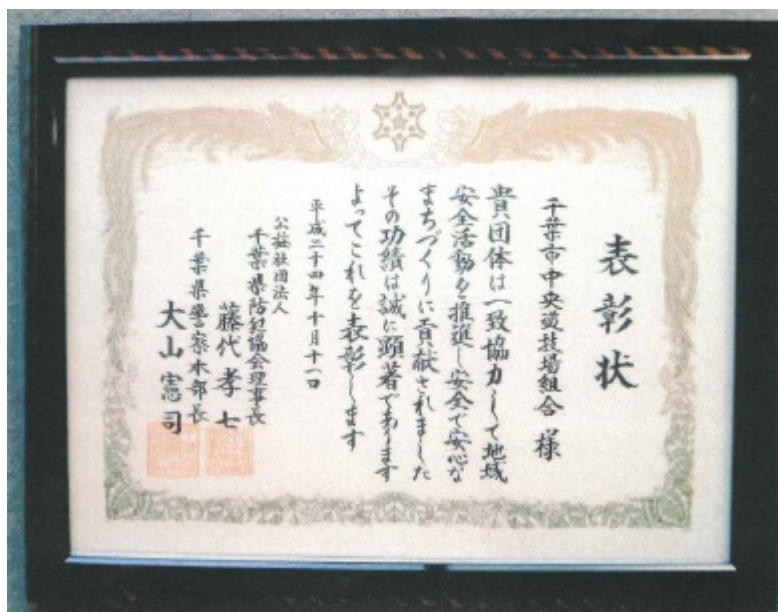 表彰状
千葉市中央遊技場組合 様
貴団体は一致協力して地域
安全活動を推進し安全で安心な
まちづくりに貢献されました
その功績は誠に顕著であります
よってこれを表彰します
平成二十四年十月十一日
公益社団法人
千葉県防犯協会理事長
藤代孝七
千葉県警察本部長
大山憲司